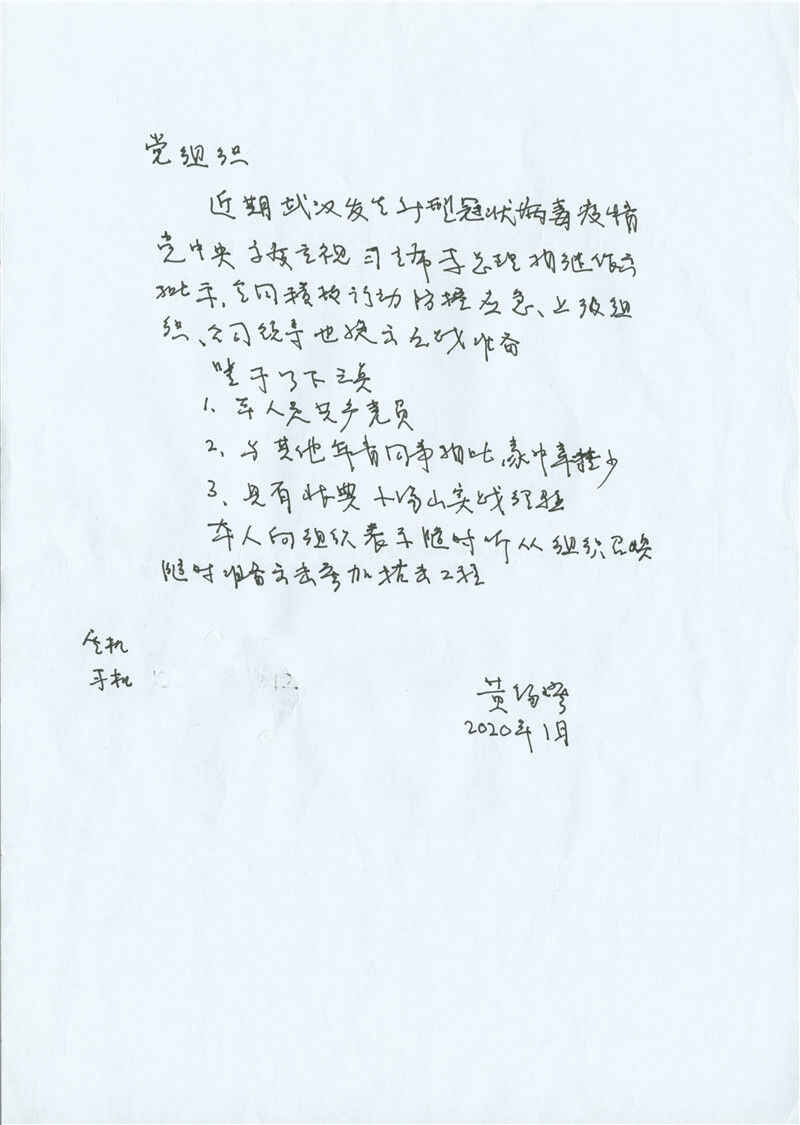 党组织
近期武汉发生新型冠状病毒疫情
党中央高度重视 习主席李总理相继作出
批示,全国积极行动防控应急、上级组
织、公司领导也做出应战准备
鉴于以下三点
1. 本人是共产党员
2. 与其他年青同事相比,家中牵挂少
3. 具有 小汤山实战经验
本人向组织表示随时听从组织召唤
随时准备出击参加抗击工程
坐机
手机
黄
2020年1月